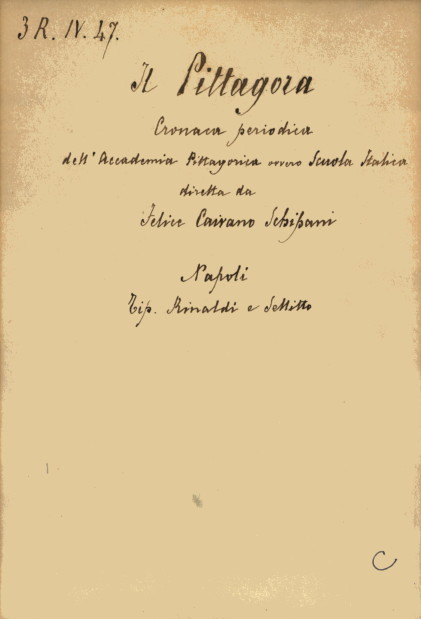 3 R. IV. 47.
Il Pittagora
Cronaca periodica
dell' Accademia Pittagorica ovvero Scuola Italica
diretta da
Felice Cairano Schipani
Napoli
Tip. Rinaldi e Sellitto
C